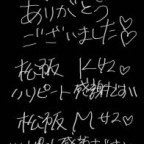 ありがとう
ございました♡
松阪 K様♡
リピート感謝です!!
松阪 M様♡